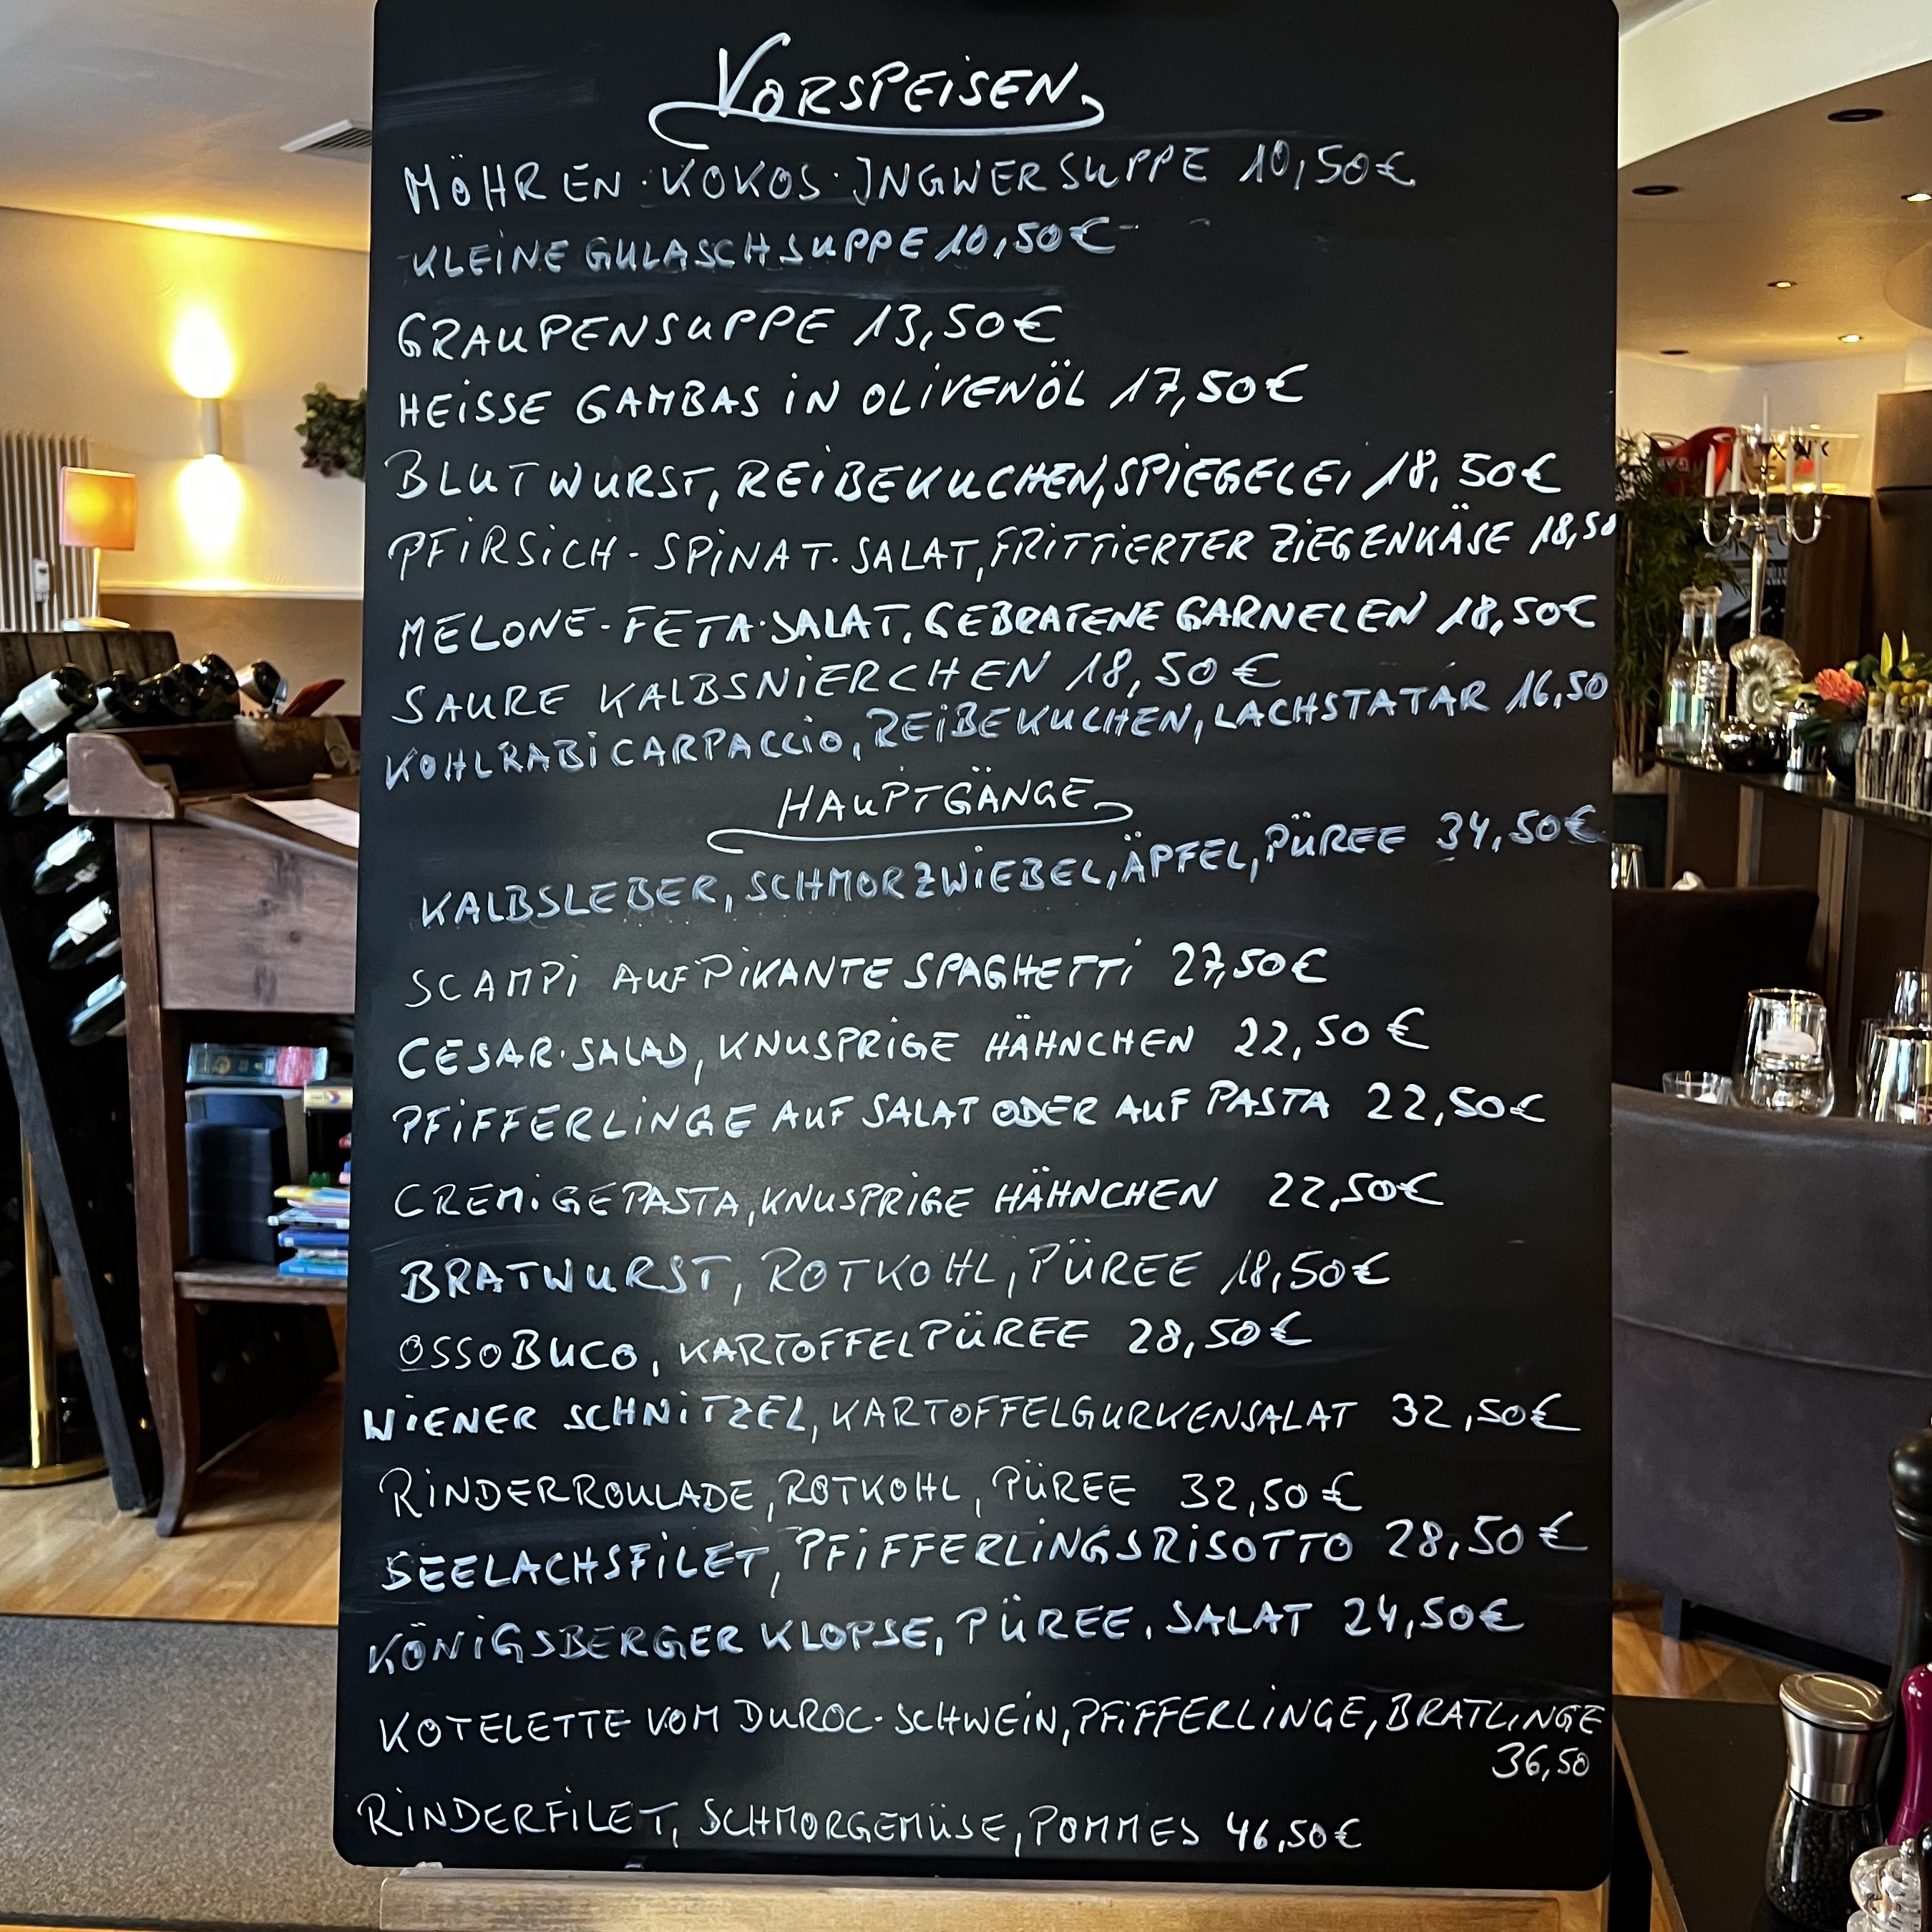 VORSPEISEN
MÖHREN-KOKOS-INGWERSUPPE 10,50€
KLEINE GULASCHSUPPE 10,50€
GRAUPENSUPPE 13,50€
HEISSE GAMBAS IN OLIVENÖL 17,50€
BLUTWURST, REIBEKUCHEN, SPIEGELEI 18,50€
PFIRSICH-SPINAT-SALAT, FRITTIERTER ZIEGENKÄSE 18,50
MELONE-FETA-SALAT, GEBRATENE GARNELEN 18,50€
SAURE KALBSNIERCHEN 18,50€
KOHLRABICARPACCIO, REIBEKUCHEN, LACHSTATAR 16,50
HAUPTGÄNGE
KALBSLEBER, SCHMORZWIEBEL, ÄPFEL, PÜREE 34,50€
SCAMPI AUF PIKANTE SPAGHETTI 27,50€
CESAR-SALAD, KNUSPRIGE HÄHNCHEN 22,50€
PFIFFERLINGE AUF SALAT ODER AUF PASTA 22,50€
CREMIGE PASTA, KNUSPRIGE HÄHNCHEN 22,50€
BRATWURST, ROTKOHL, PÜREE 18,50€
OSSOBUCO, KARTOFFELPÜREE 28,50€
WIENER SCHNITZEL, KARTOFFELGURKENSALAT 32,50€
RINDERROULADE, ROTKOHL, PÜREE 32,50€
SEELACHSFILET, PFIFFERLINGSRISOTTO 28,50€
KÖNIGSBERGER KLOPSE, PÜREE, SALAT 24,50€
KOTELETTE VOM DUROC-SCHWEIN, PFIFFERLINGE, BRATLINGE
36,50
RINDERFILET, SCHMORGEMÜSE, POMMES 46,50€